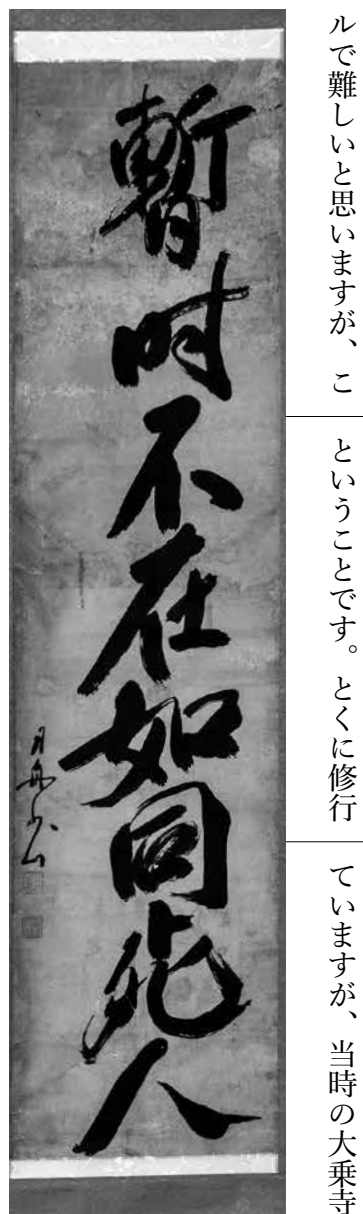 ルで難しいと思いますが、こ
ということです。とくに修行
ていますが、当時の大乗寺
暫時不在如同死人
月舟